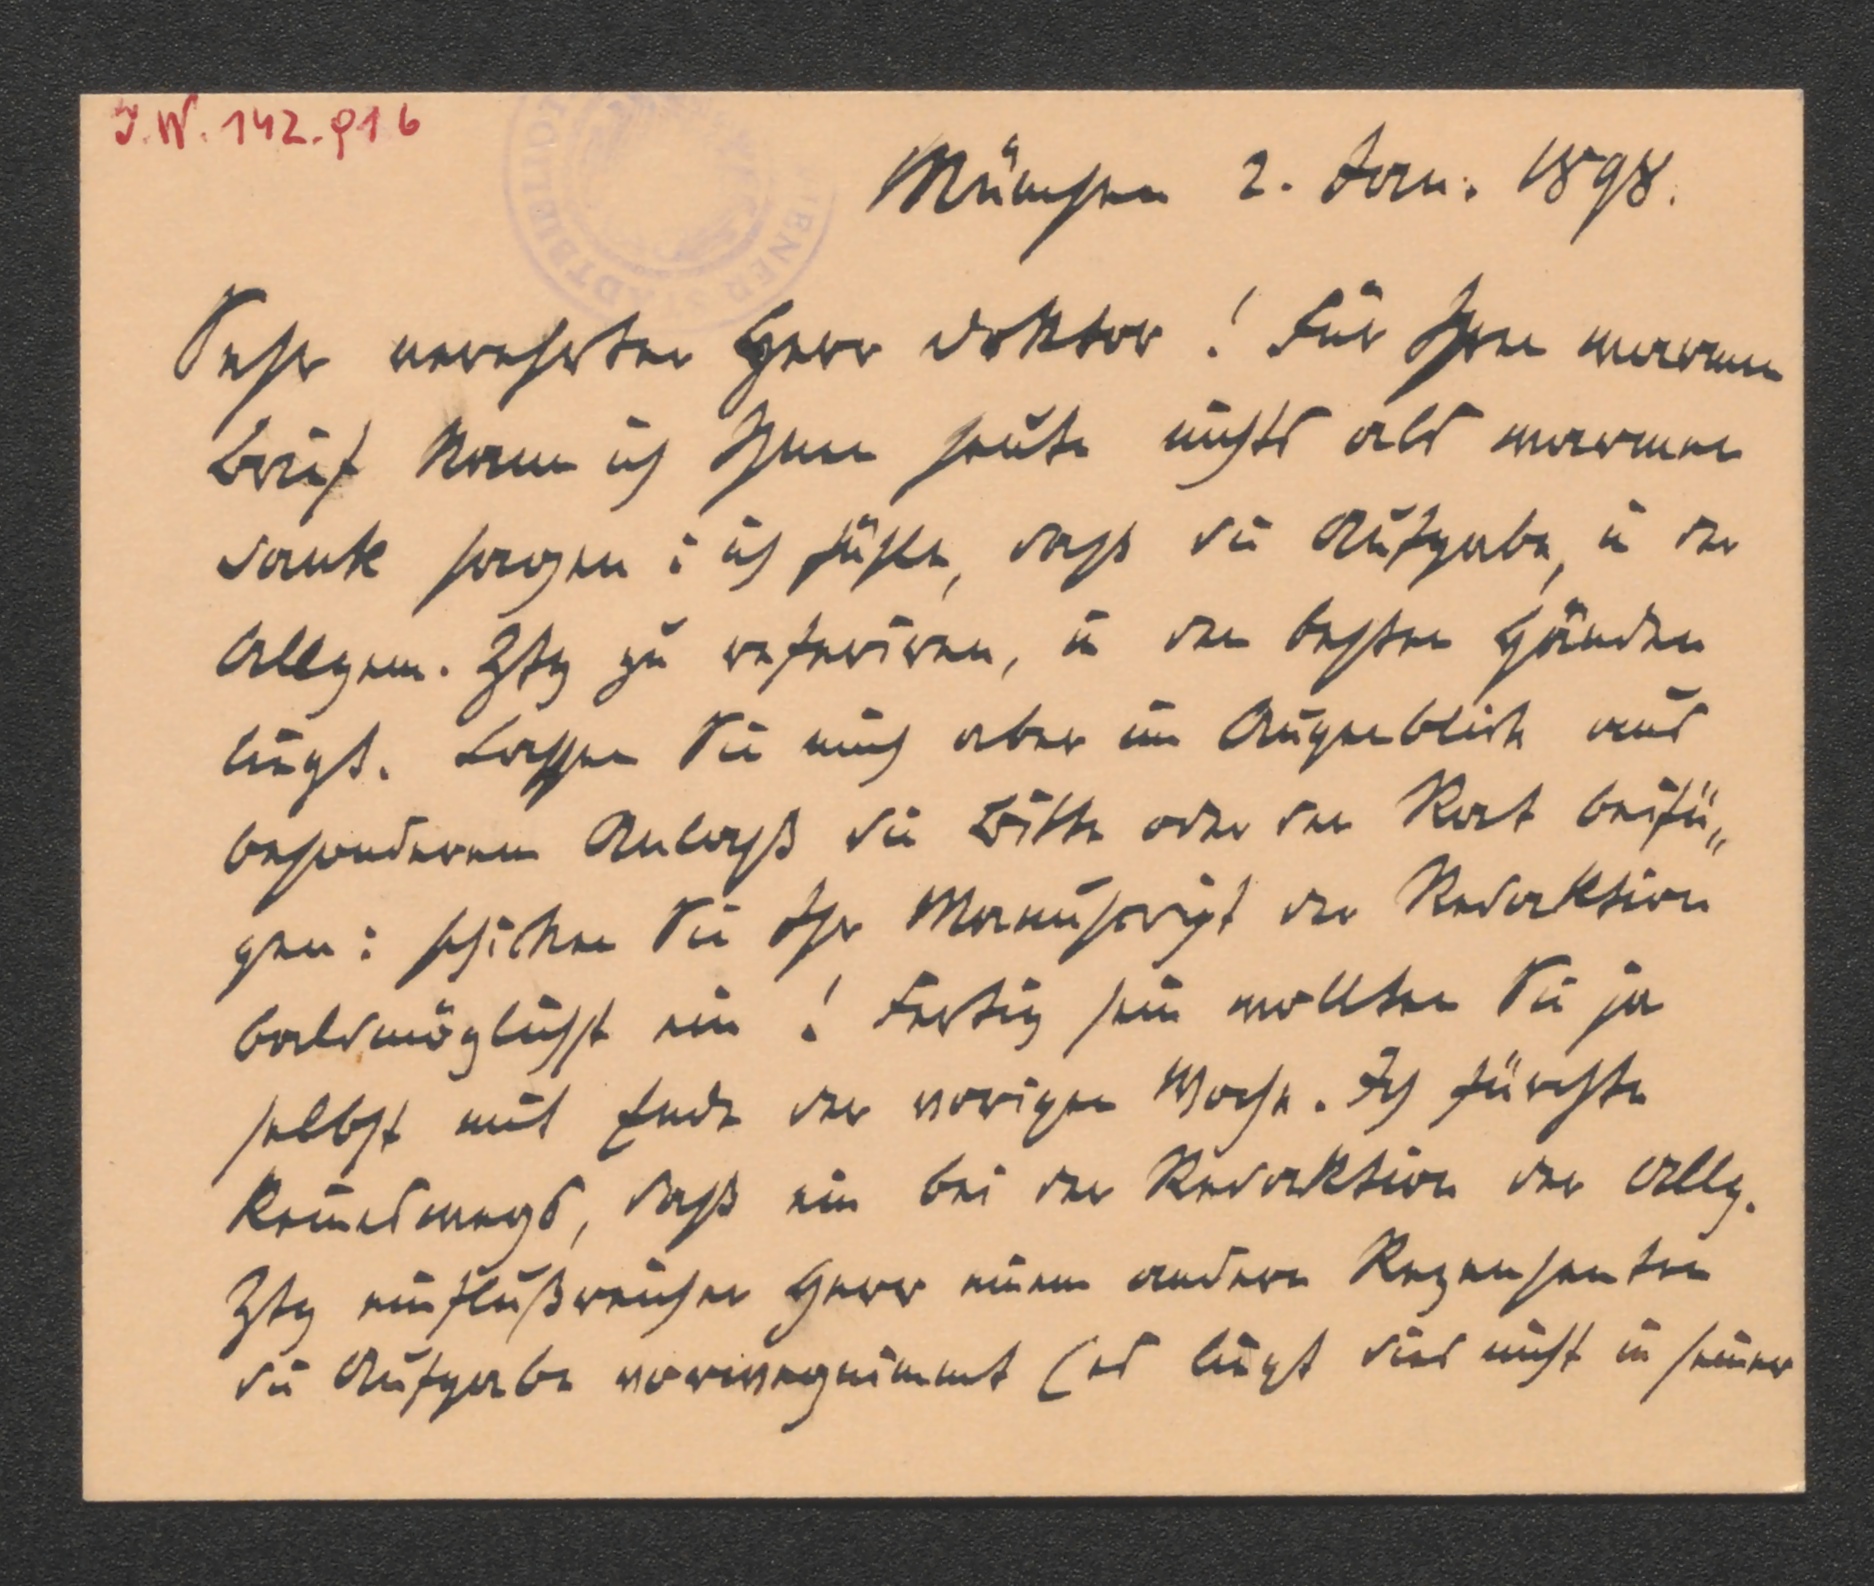 J.N. 142.916
WIENER STADTBIBLIOTHEK
München 2. Jan. 1898.
Sehr verehrter Herr Doktor! Für Ihren warmen
Brief kann ich Ihnen heute nichts als warmen
Dank sagen: ich fühle, daß die Aufgabe, in der
Allgem. Ztg zu referiren, in den besten Händen
liegt. Lassen Sie mich aber im Augenblick aus
besonderem Anlaß die Bitte oder den Rat beifü„
gen: schicken Sie Ihr Manuscript der Redaktion
baldmöglichst ein! Fertig sein wollten Sie ja
selbst mit Ende der vorigen Woche. Ich fürchte
keineswegs, daß ein bei der Redaktion der Allg.
Ztg einflußreicher Herr einem andern Rezensenten
die Aufgabe vorwegnimmt (es liegt dies nicht in seiner